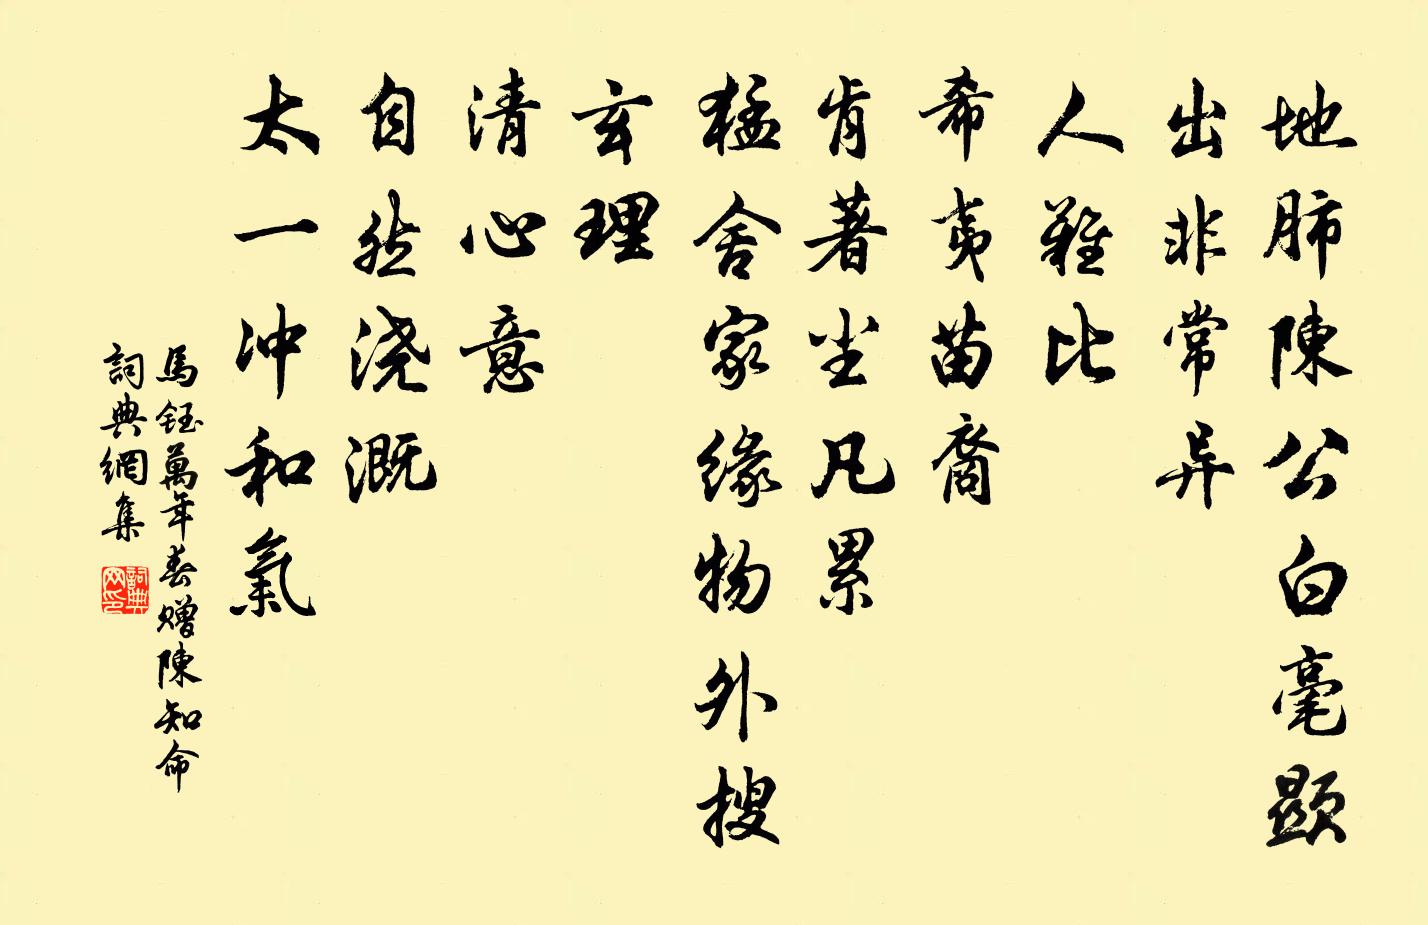 地肺陳公白毫顯
出非常异
人難比
希夷苗裔
肯著尘凡累
猛舍家缘物外搜
玄理
清心意
自然浇溉
太一冲和氣
馬鈺萬年春赠陳知命
詞典網集
詞典網印